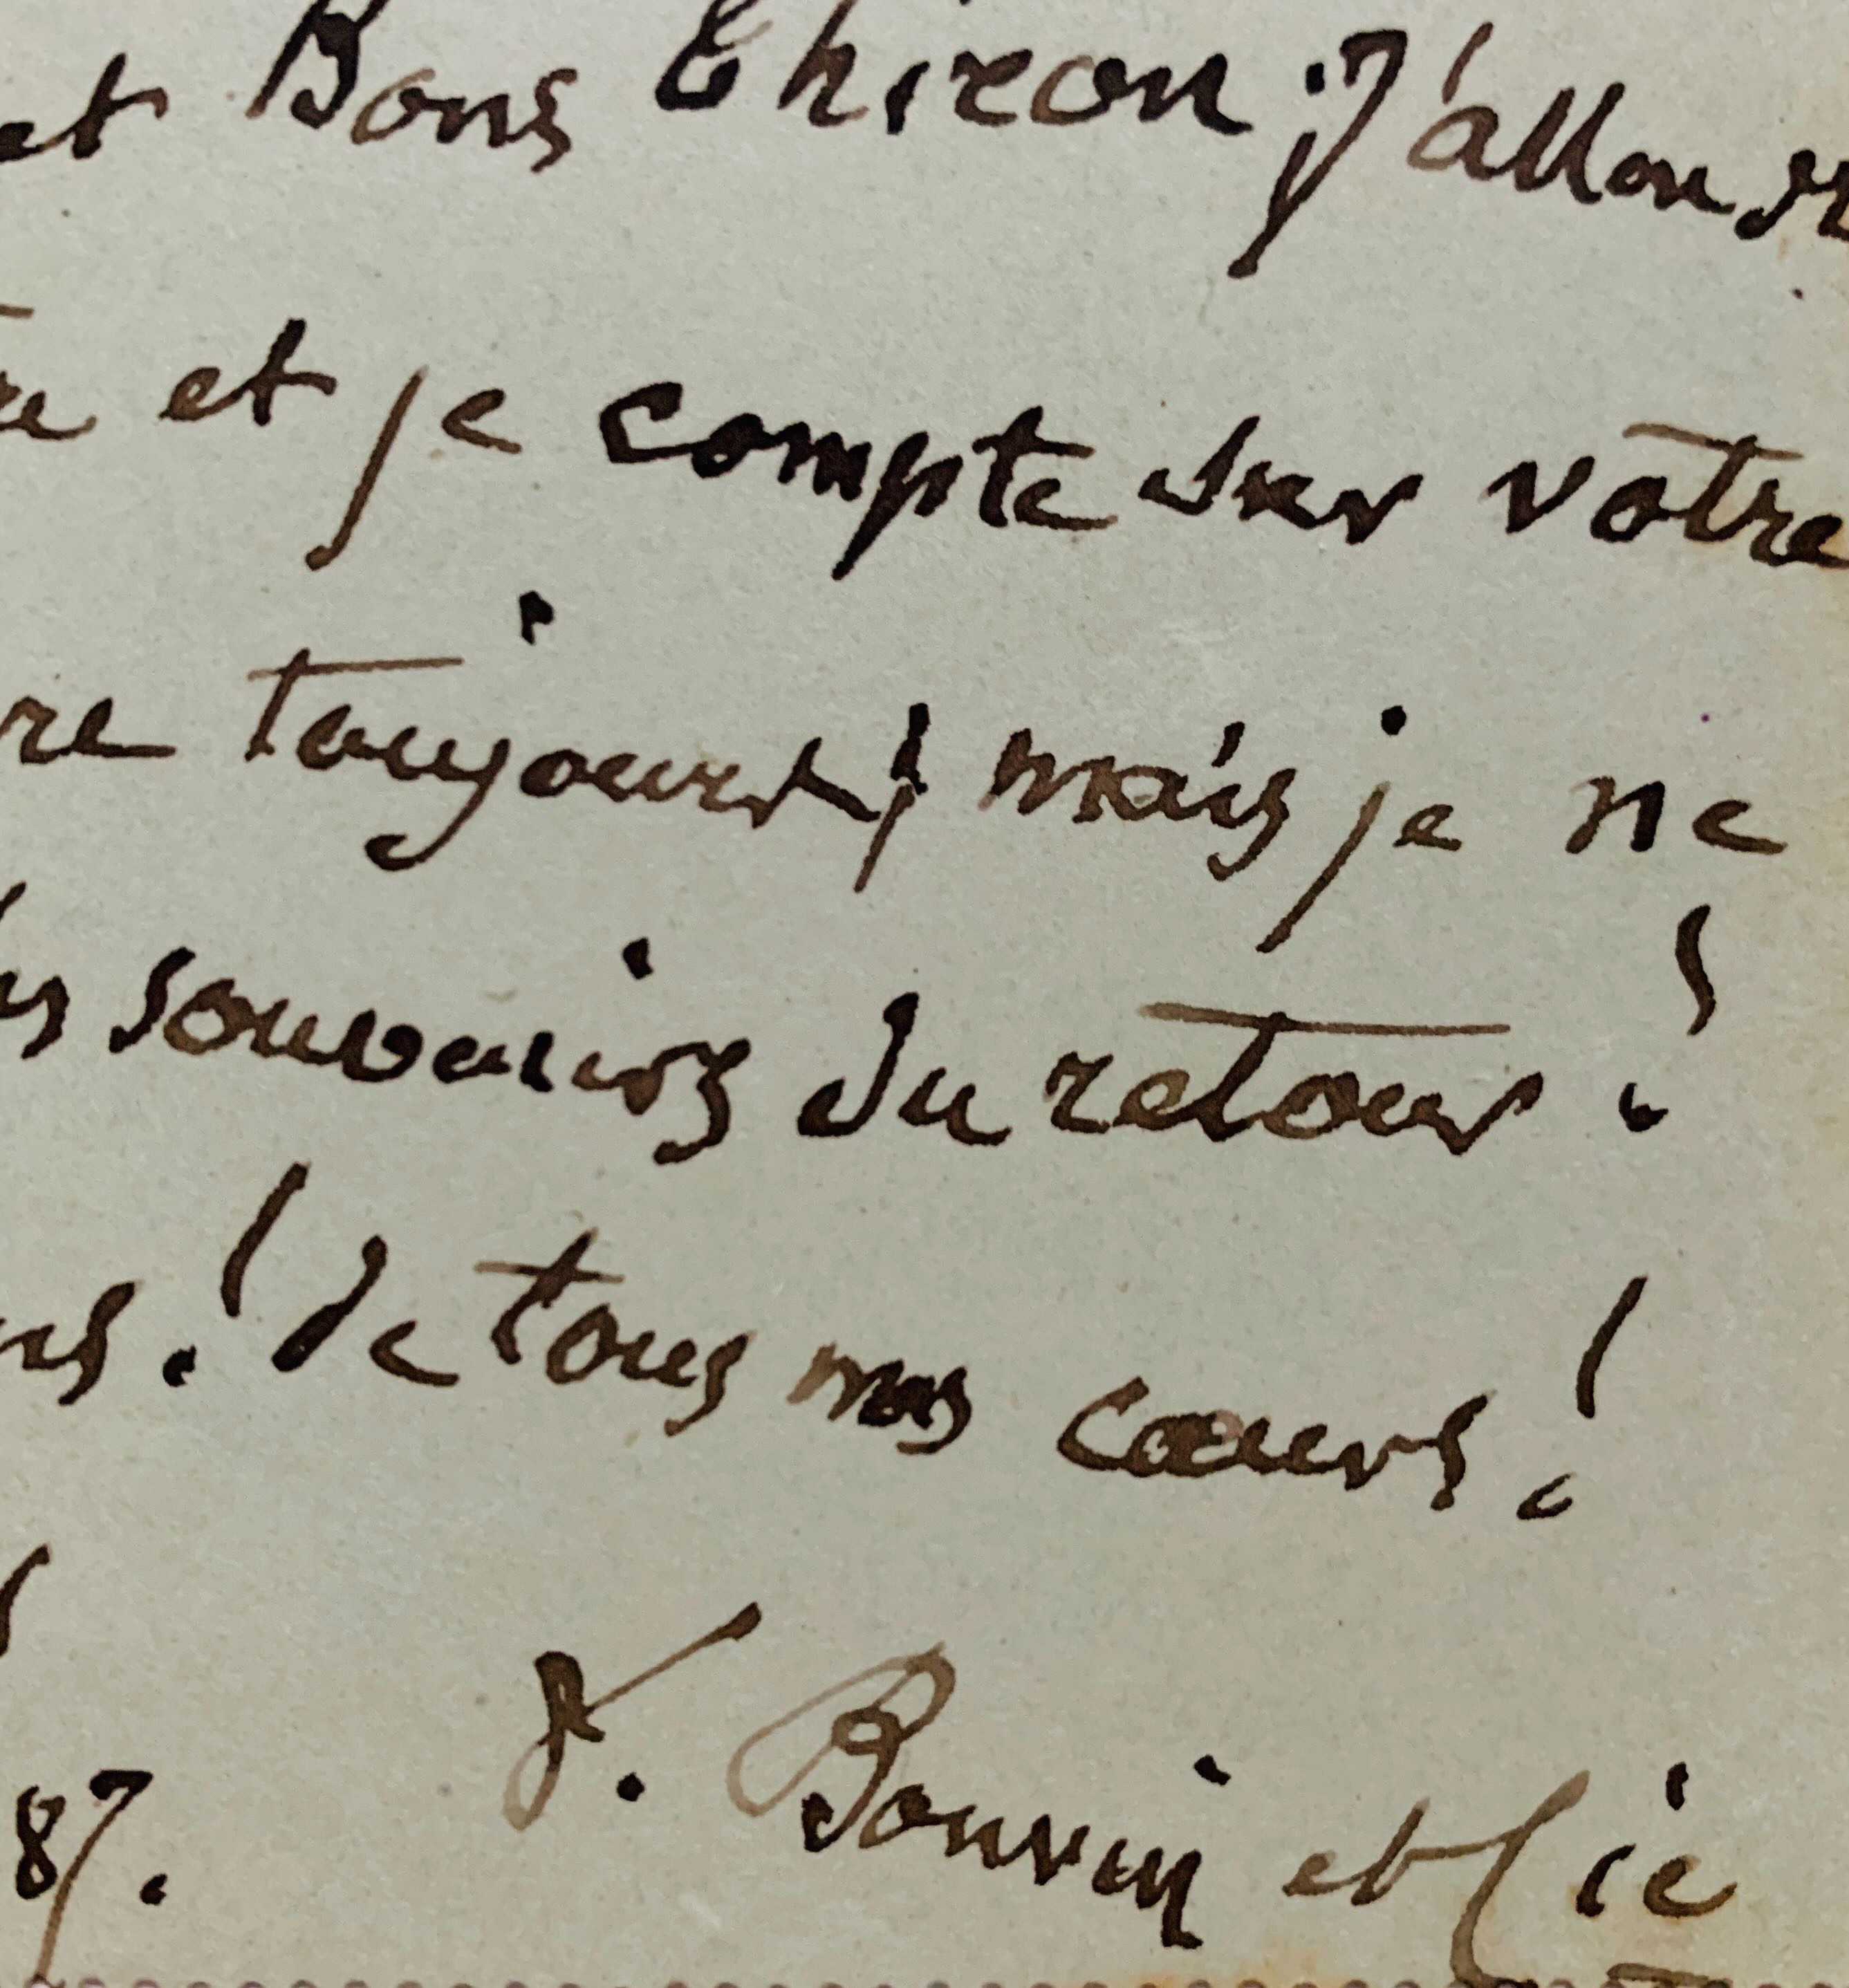 et Bons Thiron ; J'allons
et je compte sur votre
re toujours ; mais je ne
souvenirs du retour !
! De tous nos cœurs !
F. Bonvin et Cie
87.